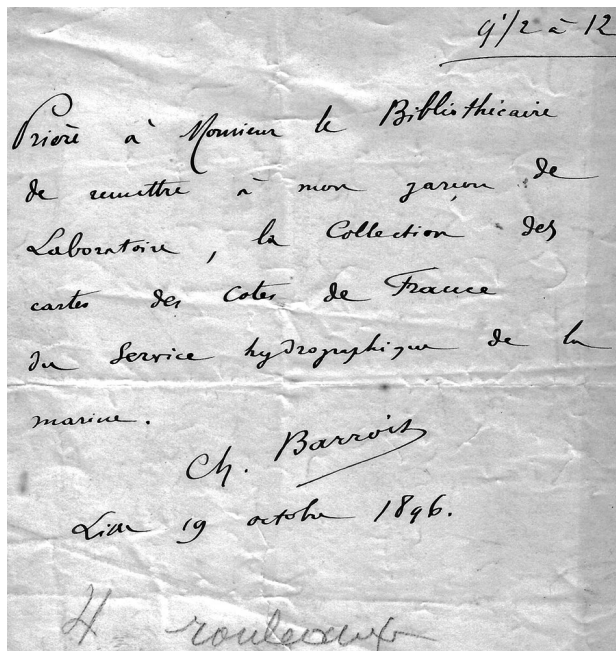 9 1/2 à 12
Prière à Monsieur le Bibliothécaire
de remettre à mon garçon de
Laboratoire, la Collection des
cartes des Cotes de France
du Service hydrographique de la
marine.
Ch. Barrois
Lille 19 octobre 1896.
4 rouleaux